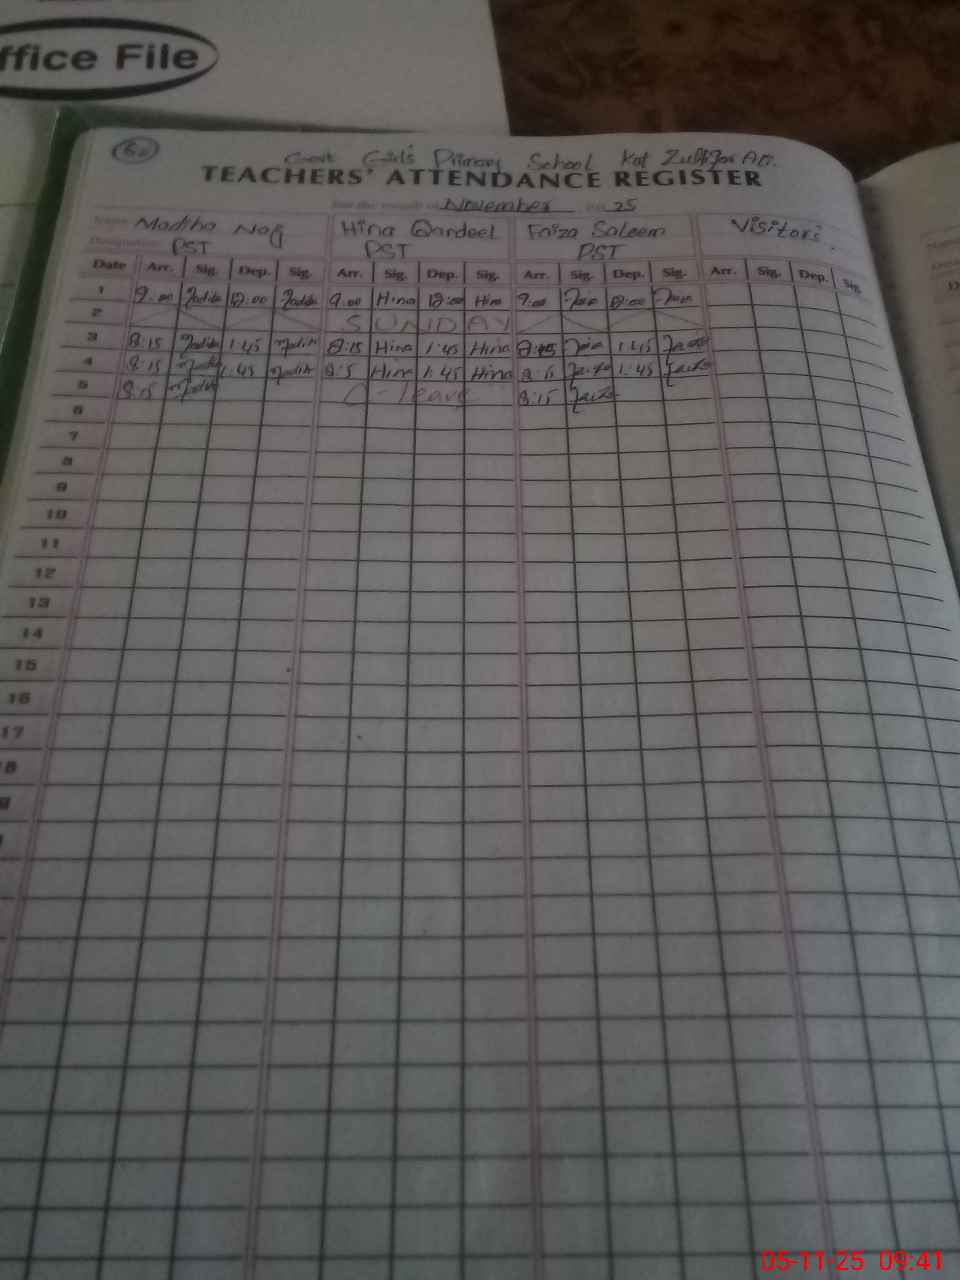 ffice File
60
Govt Girls Primary School Kot Zulfqar Ali.
TEACHERS' ATTENDANCE REGISTER
For the month of November 25
Name Madiha Hina Qandeel Faiza Saleem Visitors
Designation PST PST PST
Date Arr. Sig. Dep. Sig. Arr. Sig. Dep. Sig. Arr. Sig. Dep. Sig. Arr. Sig. Dep. Sig.
1 9:00 12:00 9:00 Hina 12:00 Hina 9:00 12:00
2 SUNDAY
3 8:15 1:45 8:15 Hina 1:45 Hina 8:15 1:45
4 8:15 1:45 8:15 Hina 1:45 Hina 8:15 1:45
5 8:15 C-leave 8:15
6
7
8
9
10
11
12
13
14
15
16
17
05-11-25 09:41